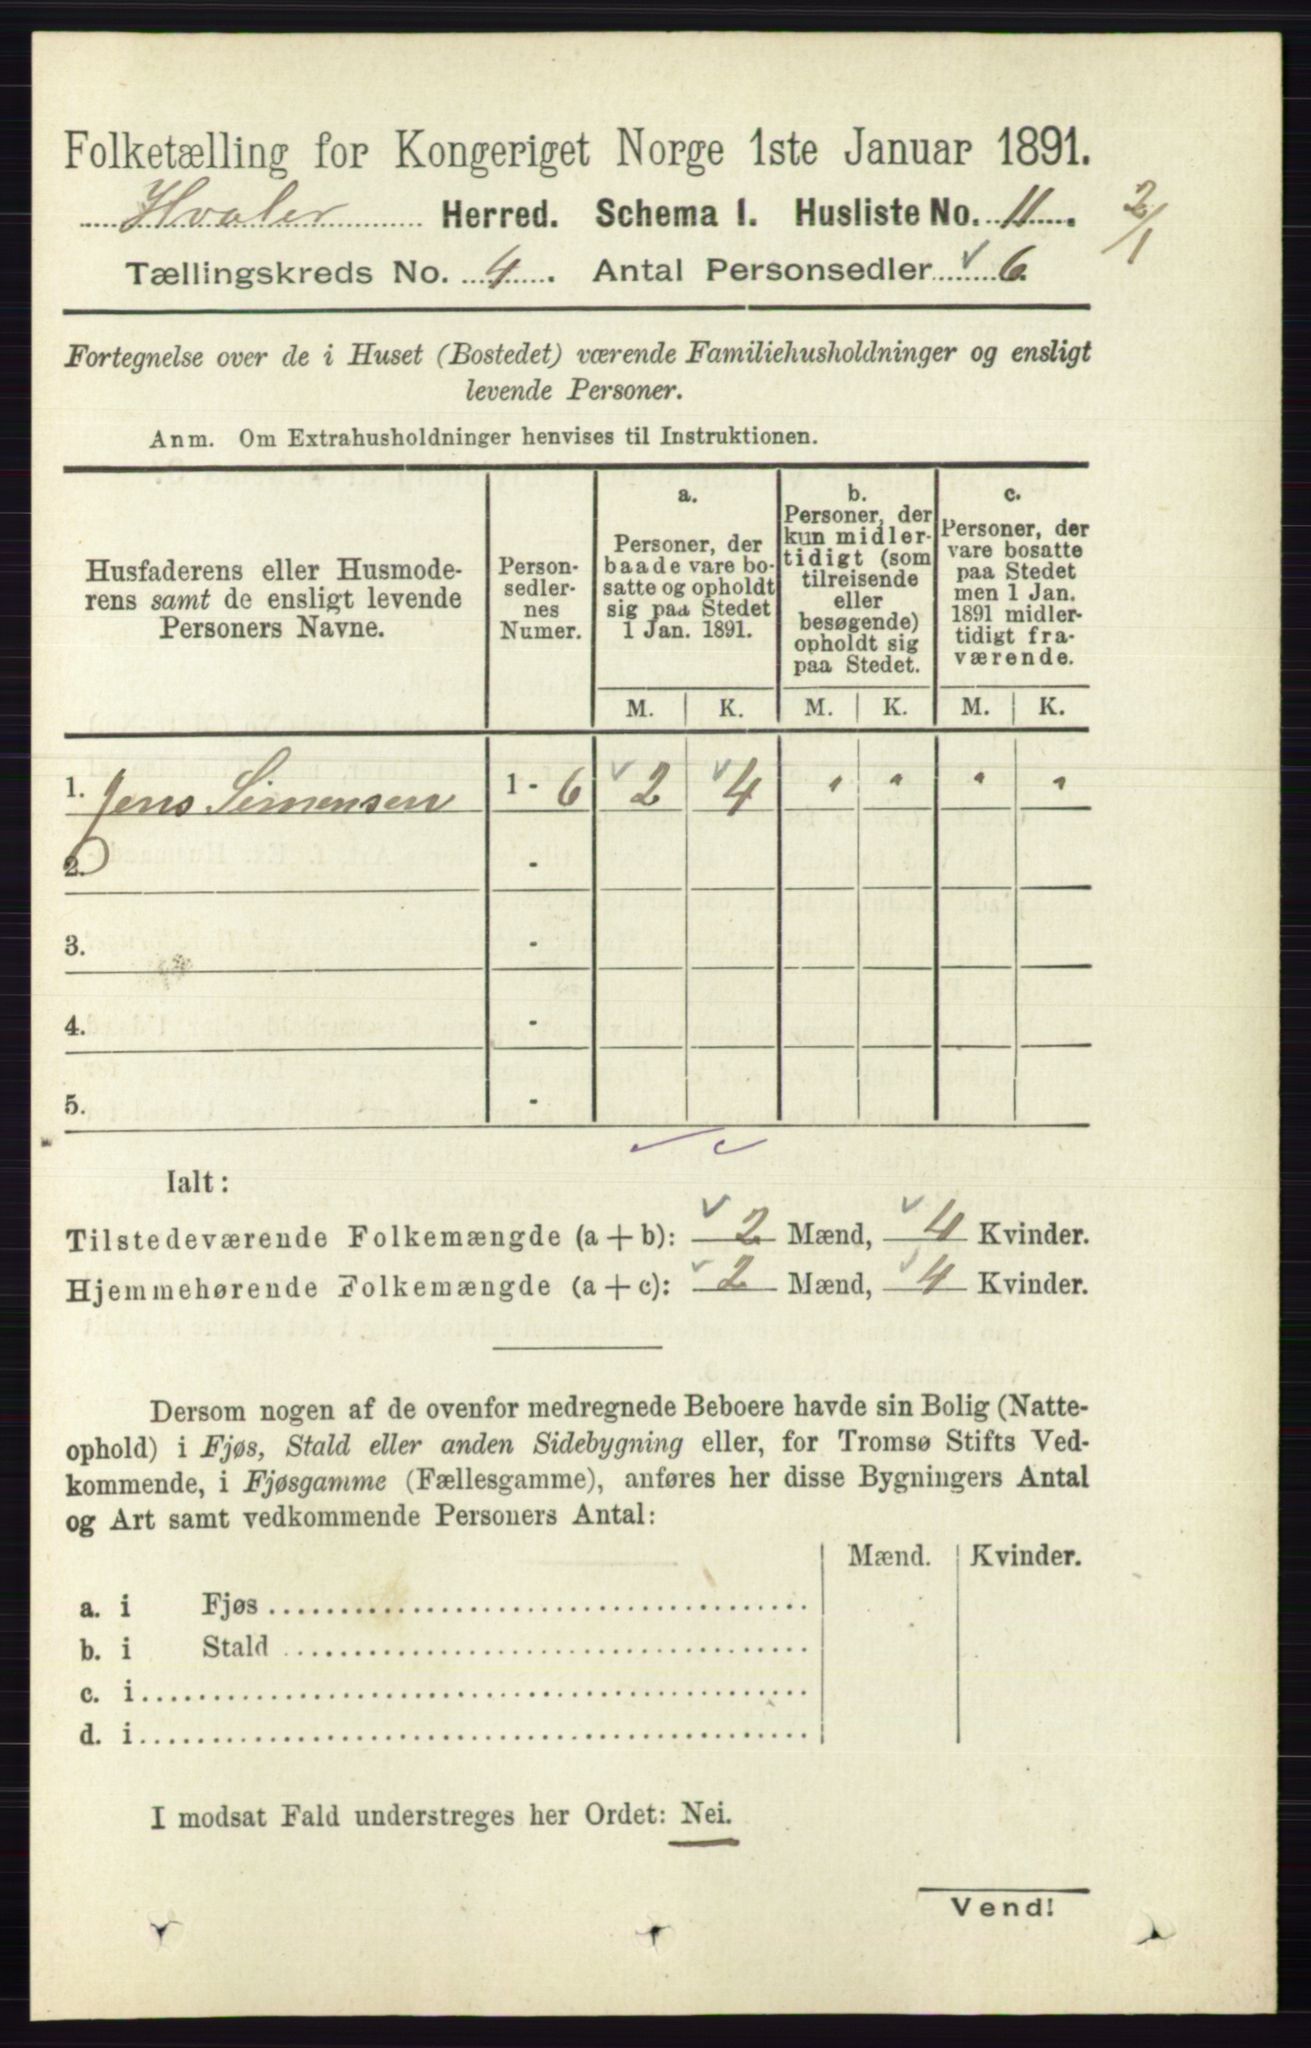 Folketælling for Kongeriget Norge 1ste Januar 1891.
Hvaler Herred. Schema 1. Husliste No. 11. 2/1
Tællingskreds No. 4. Antal Personsedler 6
Fortegnelse over de i Huset (Bostedet) værende Familiehusholdninger og ensligt
levende Personer.
Anm. Om Extrahusholdninger henvises til Instruktionen.
Husfaderens eller Husmode-
rens samt de ensligt levende
Personers Navne.
Person-
sedler-
nes
Numer.
a.
Personer, der
baade vare bo-
satte og opholdt
sig paa Stedet
1 Jan. 1891.
b.
Personer, der
kun midler-
tidigt (som
tilreisende
eller
besøgende)
opholdt sig
paa Stedet.
c.
Personer, der
vare bosatte
paa Stedet
men 1 Jan.
1891 midler-
tidigt fra-
værende.
M. K. M. K. M. K.
1. Jens Simensen 1 - 6 2 4 " " " "
2. -
3. -
4. -
5. -
Ialt:
Tilstedeværende Folkemængde (a + b): 2 Mænd, 4 Kvinder.
Hjemmehørende Folkemængde (a + c): 2 Mænd, 4 Kvinder.
Dersom nogen af de ovenfor medregnede Beboere havde sin Bolig (Natte-
ophold) i Fjøs, Stald eller anden Sidebygning eller, for Tromsø Stifts Ved-
kommende, i Fjøsgamme (Fællesgamme), anføres her disse Bygningers Antal
og Art samt vedkommende Personers Antal:
Mænd. Kvinder.
a. i Fjøs
b. i Stald
c. i
d. i
I modsat Fald understreges her Ordet: Nei.
Vend!